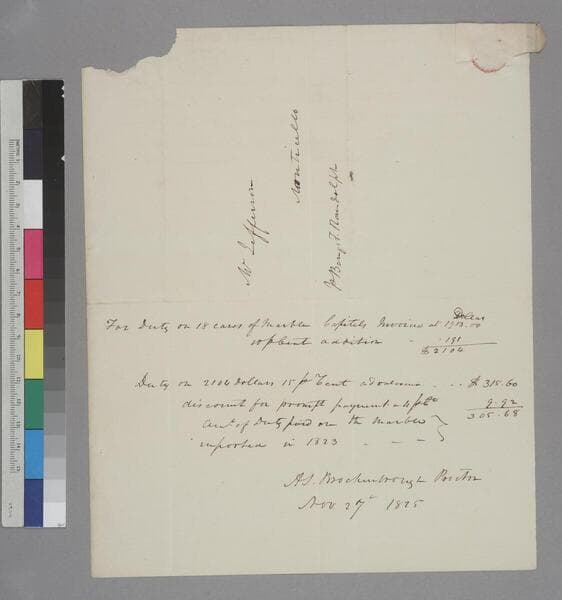 Mr Jefferson
Monticello
pr Benj. F. Randolph
For Duty on 18 cases of Marble Capitels Invoiced at 1913.00
Dollars
10 p Cent addition - 191
$2104
Duty on 2104 Dollars 15 pr Cent advalorem - .. $ 315.60
discount for prompt payment a 4 pCt 9.92
Amt of Duty paid on the Marbles } 305.68
imported in 1823 - - -
A. S. Brockenbrough Proctor
Nov 27 1825